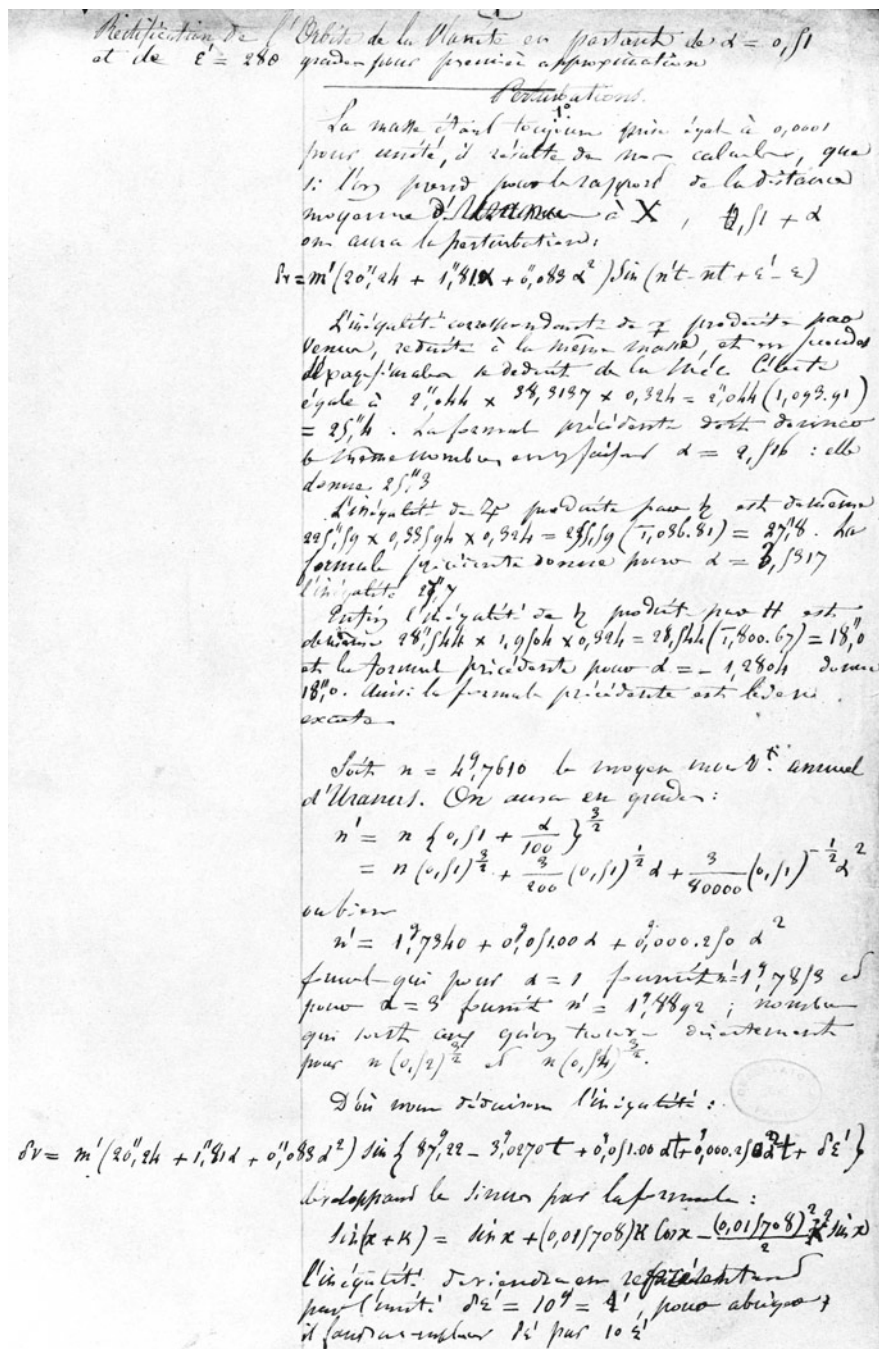 Rectification de l'Orbite de la Planète en partant de α = 0,51
et de ε' = 280 grades pour première approximation
Perturbations.
1°
La masse étant toujours prise égal à 0,0001
pour unité, il résulte de mes calculs, que
si l'on prend pour le rapport de la distance
moyenne d'Uranus à X, 0,51 + α
on aura la perturbation:
δv = m'(20",24 + 1",81α + 0",083 α²) Sin (n't - nt + ε' - ε)
L'inégalité correspondante de ♀ produite par
Venus, reduite à la même masse, et en secondes
sexagésimales se deduit de la Méc Céleste
égale à 2",044 × 38,3137 × 0,324 = 2",044 (1,093.91)
= 25",4. La formule précédente doit donner
le même nombre en y faisant α = 2,516 : elle
donne 25",3
L'inégalité de ♃ produite par ♄ est de même
225",59 × 0,33594 × 0,324 = 255,59 (1,036.81) = 27",8. La
formule précédente donne pour α = 3,5317
l'inégalité 27",7
Enfin l'inégalité de ♄ produite par H est
de même 28",544 × 1,9504 × 0,324 = 28,544 (1,800.67) = 18",0
et la formule précédente pour α = - 1,2804 donne
18",0. Ainsi la formule précédente est bien
exacte
Soit n = 4ᵍ,7610 le moyen mouvᵗ. annuel
d'Uranus. On aura en grades:
n' = n {0,51 + α/100}^(3/2)
= n (0,51)^(3/2) + 3/200 (0,51)^(1/2) α + 3/80000 (0,51)^(-1/2) α²
ou bien
n' = 1ᵍ,7340 + 0ᵍ,051.00 α + 0ᵍ,000.250 α²
formule qui pour α = 1 fournit n' = 1ᵍ,7853 et
pour α = 3 fournit n' = 1ᵍ,8892 ; nombres
qui sont ceux qu'on trouve directement
pour n (0,52)^(3/2) et n (0,54)^(3/2).
D'où nous déduisons l'inégalité :
δv = m'(20",24 + 1",81α + 0",083 α²) sin {87ᵍ,22 - 3ᵍ,0270 t + 0ᵍ,051.00 αt + 0ᵍ,000.250 α²t + δε'}
développant le sinus par la formule :
Sin(x + K) = sin x + (0,015708) K Cos x - (0,015708)²/2 K² sin x
l'inégalité deviendra en représentant
par l'unité δε' = 10ᵍ = ε', pour abréger
il faudra remplacer δε' par 10 ε'